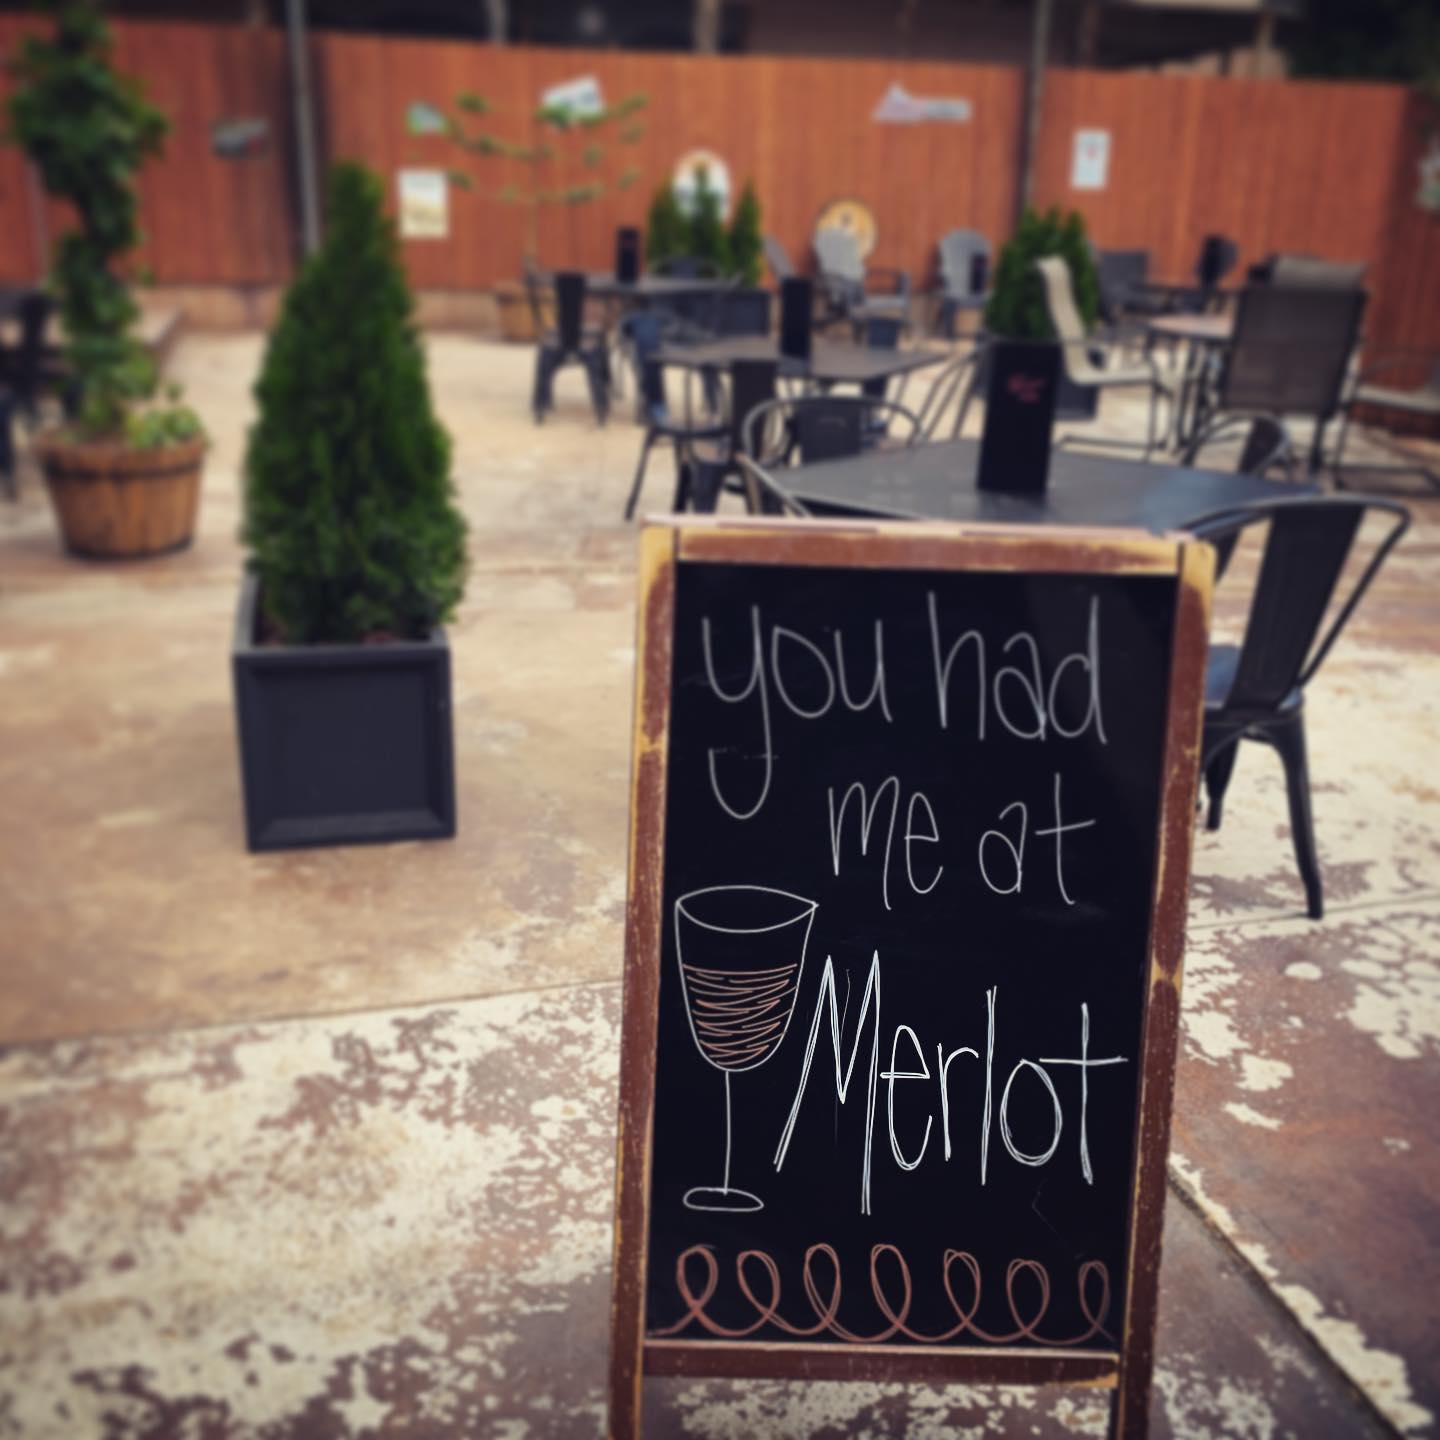 you had
me at
Merlot